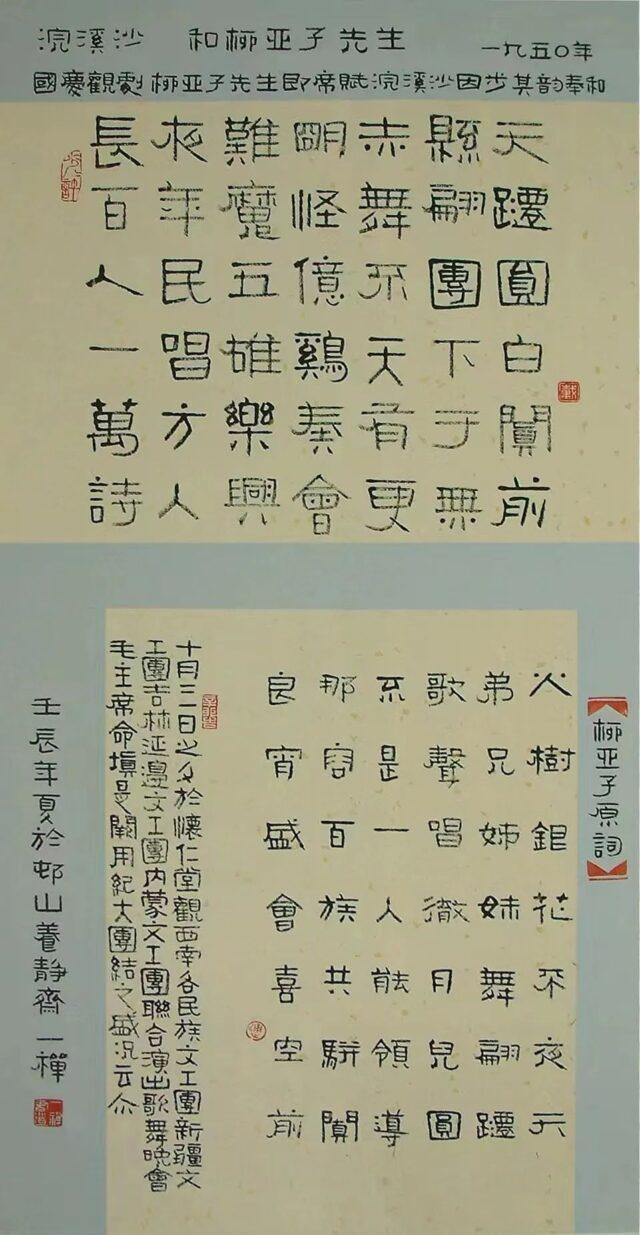 浣溪沙 和柳亚子先生 一九五〇年
國慶觀劇柳亚子先生即席賦浣溪沙因步其韵奉和
長夜難朙赤縣天
百年魔怪舞翩躚
人民五億不團圓
一唱雄鷄天下白
萬方樂奏有于闐
詩人興會更無前
柳亚子原詞
火樹銀花不夜天
弟兄姊妹舞翩躚
歌聲唱徹月兒圓
不是一人能領導
那容百族共駢闐
良宵盛會喜空前
十月三日之夕於懷仁堂觀西南各民族文工團新疆文
工團吉林延邊文工團内蒙文工團聯合演出歌舞晚會
毛主席命填是闋用紀大團結之盛况云尒
壬辰年夏於邨山養靜齋一禪